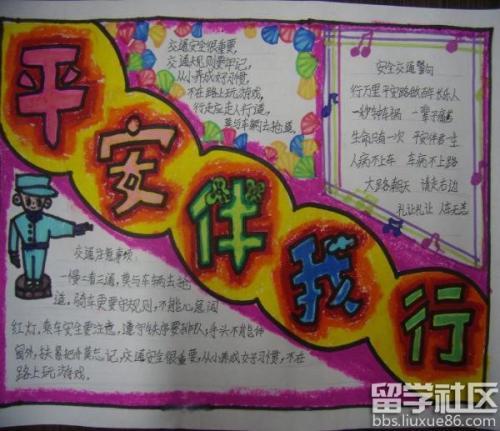 平安伴我行
交通安全很重要,
交通规则要牢记,
从小养成好习惯,
不在路上玩游戏,
行走应走人行道,
莫与车辆去抢道。
安全交通警句
行万里平安路做百年长乐人
一秒钟车祸 一辈子痛苦
生病只有一次 平安伴君一生
人病不上车 车病不上路
大路朝天 请走右边
礼让礼让 人车无恙
交通注意事项:
一慢二看三通,莫与车辆去抢
道,骑车更要守规则,不能心急闯
红灯,乘车安全要注意,遵守秩序要排队,手头不能伸
窗外,扶紧把手莫忘记,交通安全很重要,从小养成好习惯,不在
路上玩游戏。
留学社区
bbs.liuxue86.com